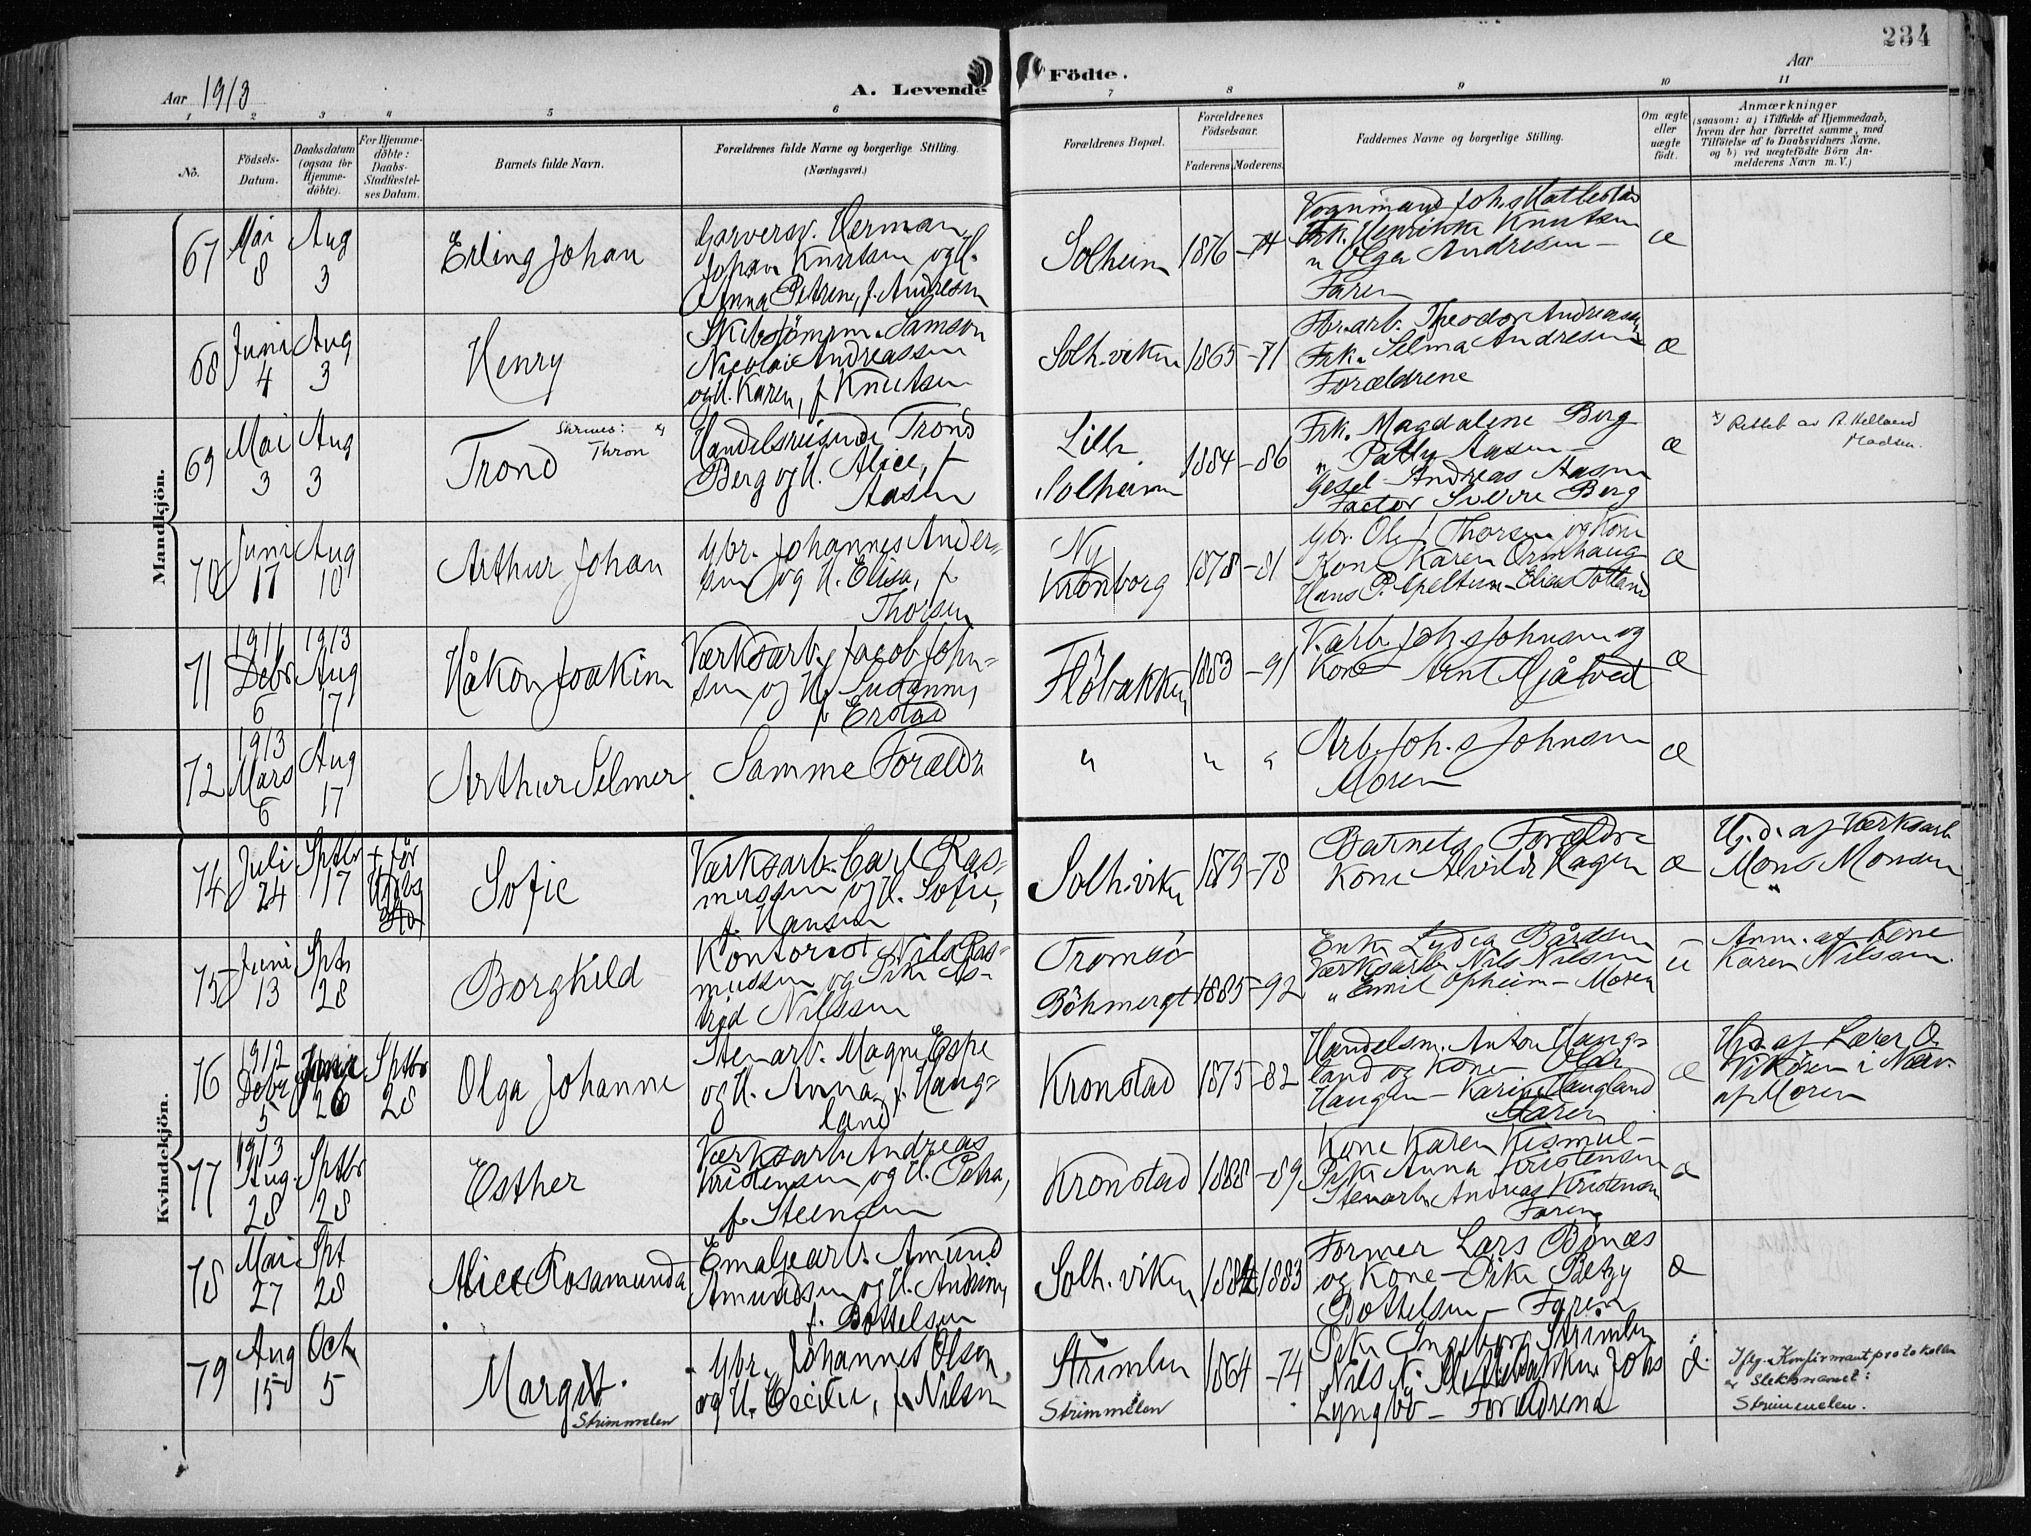 234
Aar 1913
A. Levende
Födte.
Aar
1 2 3 4 5 6 7 8 9 10 11
No.
Födsels-
Datum.
Daabsdatum
(ogsaa for
Hjemme-
döbte).
For Hjemme-
döbte:
Daabs-
Stadfæstel-
ses Datum.
Barnets fulde Navn.
Forældrenes fulde Navne og borgerlige Stilling.
(Næringsvei.)
Forældrenes Bopæl.
Forældrenes
Födselsaar.
Faderens.
Moderens.
Faddernes Navne og borgerlige Stilling.
Om ægte
eller
uægte
födt.
Anmærkninger
(saasom: a) i Tilfælde af Hjemmedaab,
hvem der har forrettet samme, med
Tilföielse af to Daabsvidners Navne,
og b) ved uægtefödte Börn An-
melderens Navn m. V.)
Mandkjön.
67
Mai
8
Aug
3
Erling Johan
Garversv. Herman
Johan Knutsen og H.
Anna Petrine, f. Andresen
Solheim
1876
-74
Vognmand Johs
Frk. Henrikke Knutsen
" Olga Andresen -
Faren
æ
68
Juni
4
Aug
3
Henry
Skibstömrm. Samson
Nicolai Andreassen
og H. Karen, f Knutsen
Solh.viken
1865
-71
Theodor Andreassen
Frk. Selma Andresen
Forældrene
æ
69
Mai
3
Aug
3
Skrives: x)
Trond Thron
Handelsreisende Trond
Berg og H. Alice, f
Aasen
Lille
Solheim
1884
-86
Frk. Magdalene Berg
" Pally Aasen -
Gesel Andreas Aasen
Factor Sverre Berg
æ
x) Rettet av R. Helland
Madsen.
70
Juni
17
Aug
10
Arthur Johan
Gbr. Johannes Ander-
sen og H. Elisa, f
Thorsen
Ny
Kronborg
1878
-81
Gbr. Ole J Thorsen og Kone
Kone Karen Ormhaug
Hans P. Apeltun - Elias Totland
æ
71
1911
Debr
6
1913
Aug
17
Håkon Joakim
Værksarb. Jacob John-
sen og H. Susanne,
f Erstad
Flöbakken
1883
-91
V.arb. Joh.s Johnsen og
Kone - Arnt Mjåtved
æ
72
1913
Mars
6
Aug
17
Arthur Selmer
Samme Foræld
"
"
"
Arb. Joh.s Johnsen
Moren
æ
Kvindekjön.
74
Juli
24
Sptbr
17
Sofie
Værksarb. Carl Ras-
mussen og H. Sofie,
f. Hansen
Solh.viken
1879
-78
Barnets Foræld
Kone Alvilde Hagen
æ
Hj.d. af Værksarb
Mons Monsen
75
Juni
13
Sptr
28
Borghild
Kontorist Nils Ras-
mussen og Pike As-
trid Nilssen
Tromsö
Böhmergt
1885
-92
Enke Lydia Bårdsen
Værksarb. Nils Nilsen
" Emil Opheim - Moren
u
Anm. af Kone
Karen Nilssen.
76
1912
Debr
5
26
Sptbr
28
Olga Johanne
Stenarb. Magne Espe
og H. Anna, f. Haug-
land
Kronstad
1875
-82
Handelsm. Anton Haug-
land og Kone
Haugen - Karine Haugland
Faren
æ
Hj.d. af Lærer O.
Vikören i Nærv.
af Moren
77
1913
Aug.
28
Sptbr
28
Esther
Værksarb. Andreas
Kristensen og H. Petra,
f Steensen
Kronstad
1888
-89
Kone Karen Kismul -
Pike Anna Kristensen
Stenarb. Andreas Kristensen
Faren
æ
78
Mai
27
Spt
28
Alice Rosamunda
Emaljearb. Amund
Amundsen og H. Andrine,
f. Bottelsen
Solh.viken
1883
Former Lars Bönæs
og Kone - Pike Betzy
Bottelsen - Faren
æ
79
Aug
15
Oct
5
Margit.
Strimmelen
Gbr. Johannes Olsen
og H. Cecilie, f Nilsen
Strimlen
Strimmelen
1864
-74
Pike Ingeborg Strimlen
Nils N. Johs
Lyngbö - Forældrene
æ
Iflg. Konfirmantprotokollen
er Slektsnavnet:
Strimmelen.